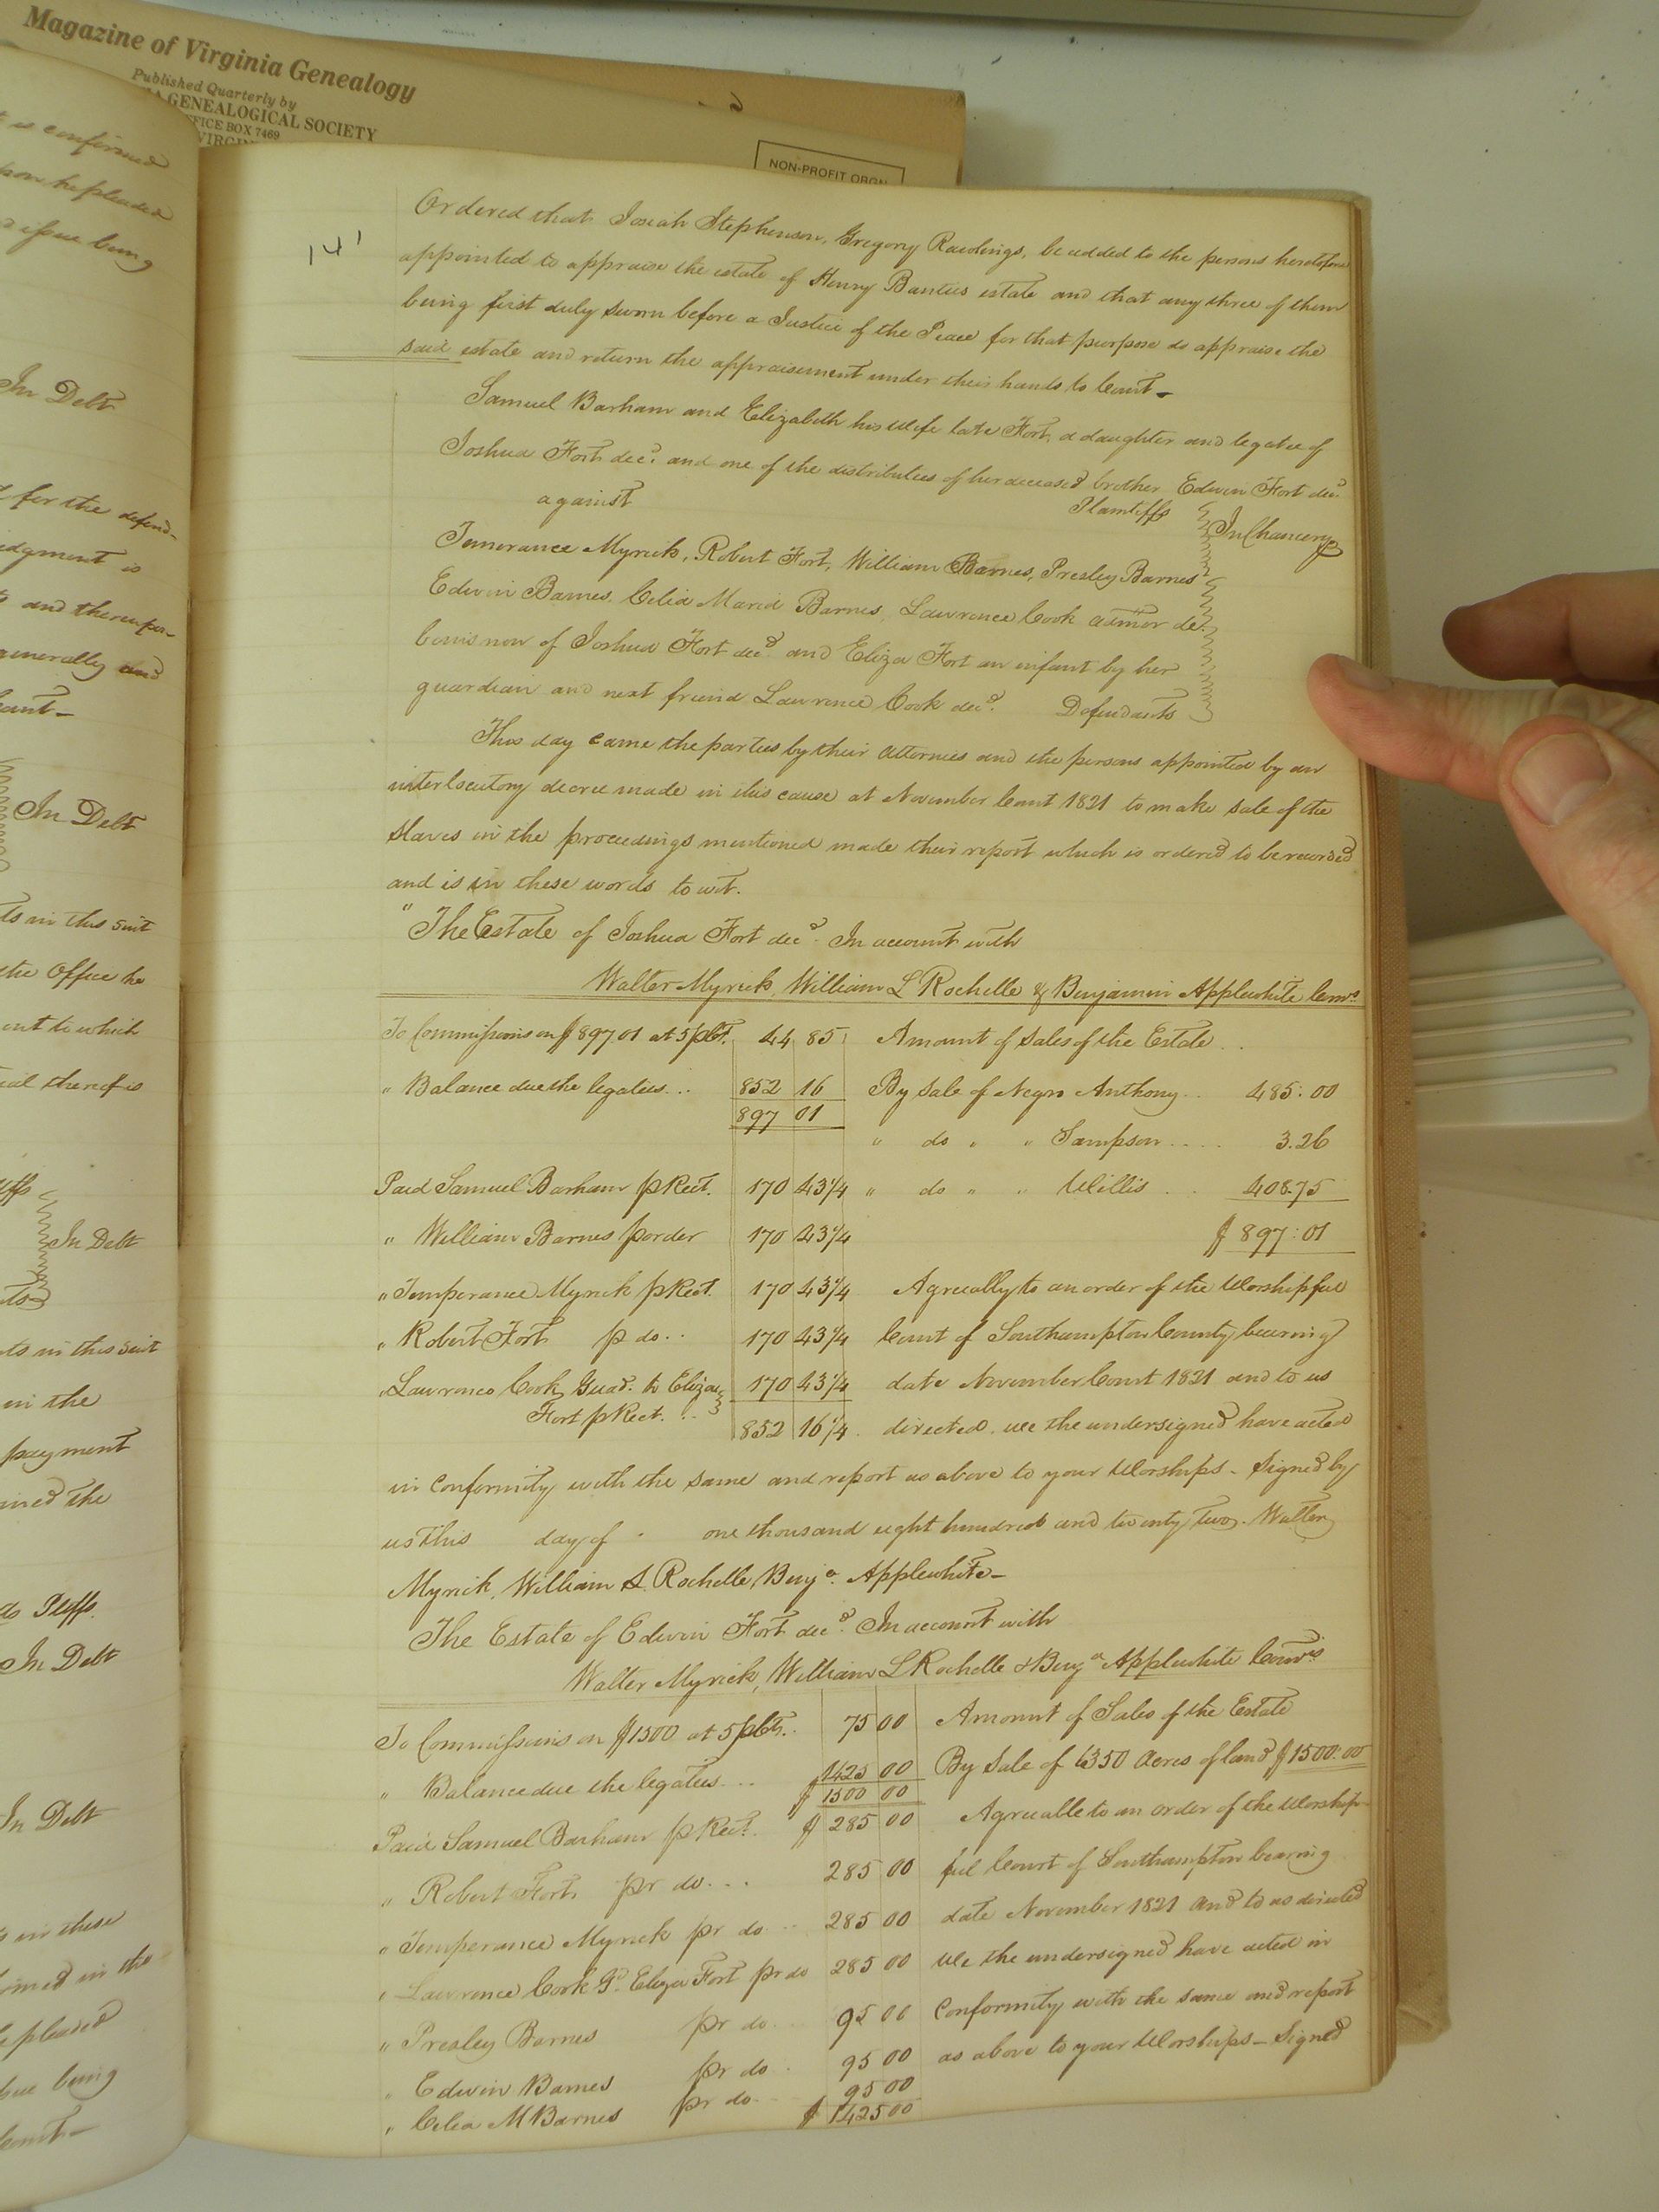 Magazine of Virginia Genealogy
Published Quarterly by
GENEALOGICAL SOCIETY
OFFICE BOX 7469
NON-PROFIT ORGN
is confirmed
pon he pleaded
issue being
In Debt
for the defend-
judgment is
and thereupon
generally and
Court-
In Debt
in this suit
the Office he
to which
thereof is
In Debt
in this suit
in the
payment
the
Plffs.
In Debt
In Debt
in these
in the
pleaded
being
Court-
141
Ordered that Josiah Stephenson, Gregory Rawlings, be added to the persons heretofore
appointed to appraise the estate of Henry Banties estate and that any three of them
being first duly sworn before a Justice of the Peace for that purpose do appraise the
said estate and return the appraisement under their hands to Court-
Samuel Barham and Elizabeth his wife late Fort, a daughter and legatee of
Joshua Fort decd. and one of the distributees of her deceased brother Edwin Fort decd.
Plaintiffs
against
In Chancery
Temerance Myrick, Robert Fort, William Barnes, Presley Barnes
Edwin Barnes, Celia Maria Barnes, Lawrence Cook admor de
bonis non of Joshua Fort decd. and Eliza Fort an infant by her
guardian and next friend Lawrence Cook decd. Defendants
This day came the parties by their attornies and the persons appointed by an
interlocutory decree made in this cause at November Court 1821 to make sale of the
slaves in the proceedings mentioned made their report which is ordered to be recorded
and is in these words to wit.
" The Estate of Joshua Fort decd. In account with
Walter Myrick, William L Rochelle & Benjamin Applewhite Comrs
To Commissions on $897 01 at 5 pCt. 44 85 Amount of Sales of the Estate ..
" Balance due the legatees ... 852 16 By Sale of Negro Anthony .. 485:00
897 01
" do " " Sampson .... 3.26
Paid Samuel Barham p Rect. 170 43 1/4 " do " " Willis .. 408.75
" William Barnes p order 170 43 1/4 $ 897:01
" Temperance Myrick p Rect. 170 43 1/4 Agreeably to an order of the Worshipful
" Robert Fort p do .. 170 43 1/4 Court of Southampton County bearing
" Lawrence Cook, Guad. to Eliza 170 43 1/4 date November Court 1821 and to us
Fort p Rect. ..
852 16 1/4 directed. we the undersigned have acted
in conformity with the same and report as above to your Worships- Signed by
us this day of one thousand eight hundred and twenty two. Walter
Myrick, William L Rochelle, Benja. Applewhite-
The Estate of Edwin Fort decd. In account with
Walter Myrick, William L Rochelle & Benja Applewhite Comrs
To Commissions on $1500 at 5 pCts.. 75 00 Amount of Sales of the Estate
" Balance due the legatees ... $1425 00 By Sale of 6350 Acres of land $1500:00
$ 1500 00
Paid Samuel Barham p Rect. $ 285 00 Agreeable to an order of the Worship-
" Robert Fort pr do ... 285 00 ful Court of Southampton bearing
" Temperance Myrick pr do ... 285 00 date November 1821 and to us directed
" Lawrence Cook Gd. Eliza Fort pr do 285 00 We the undersigned have acted in
" Presley Barnes pr do ... 95 00 conformity with the same and report
" Edwin Barnes pr do . 95 00 as above to your Worships- Signed
" Celia M Barnes pr do .. 95 00
$ 1425 00